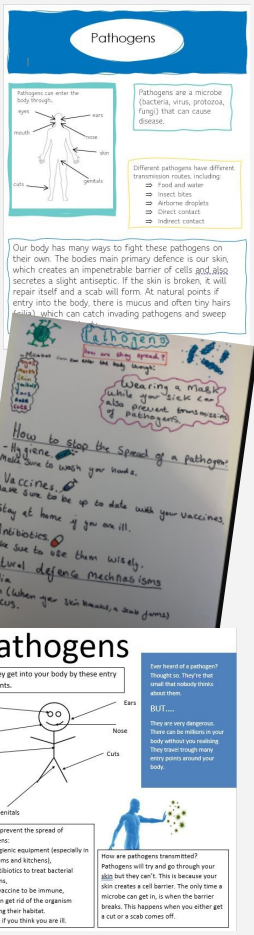 Pathogens
Pathogens can enter the
body through.
eyes
ears
mouth
nose
skin
genitals
cuts
Pathogens are a microbe
(bacteria, virus, protozoa,
fungi) that can cause
disease.
Different pathogens have different
transmission routes, including:
⇒ Food and water
⇒ Insect bites
⇒ Airborne droplets
⇒ Direct contact
⇒ Indirect contact
Our body has many ways to fight these pathogens on
their own. The bodies main primary defence is our skin,
which creates an impenetrable barrier of cells and also
secretes a slight antiseptic. If the skin is broken, it will
repair itself and a scab will form. At natural points if
entry into the body, there is mucus and often tiny hairs
(cilia), which can catch invading pathogens and sweep
Pathogens
How are they spread?
can enter the body through:
Wearing a mask
while your sick can
also prevent transmission
of pathogens.
How to stop the spread of a pathogen:
- Hygiene.
Make sure to wash your hands.
Vaccines.
sure to be up to date with your vaccines.
Stay at home if you are ill.
Antibiotics
sure to use them wisely.
defence mechanisms
(When your skin breaks, a scab forms)
athogens
ey get into your body by these entry
nts.
Ears
Nose
Cuts
enitals
Ever heard of a pathogen?
Thought so. They're that
small that nobody thinks
about them.
BUT....
They are very dangerous.
There can be millions in your
body without you realising.
They travel trough many
entry points around your
body.
prevent the spread of
ens:
gienic equipment (especially in
ms and kitchens),
tibiotics to treat bacterial
ns,
vaccine to be immune,
n get rid of the organism
ng their habitat.
if you think you are ill.
How are pathogens transmitted?
Pathogens will try and go through your
skin but they can't. This is because your
skin creates a cell barrier. The only time a
microbe can get in, is when the barrier
breaks. This happens when you either get
a cut or a scab comes off.